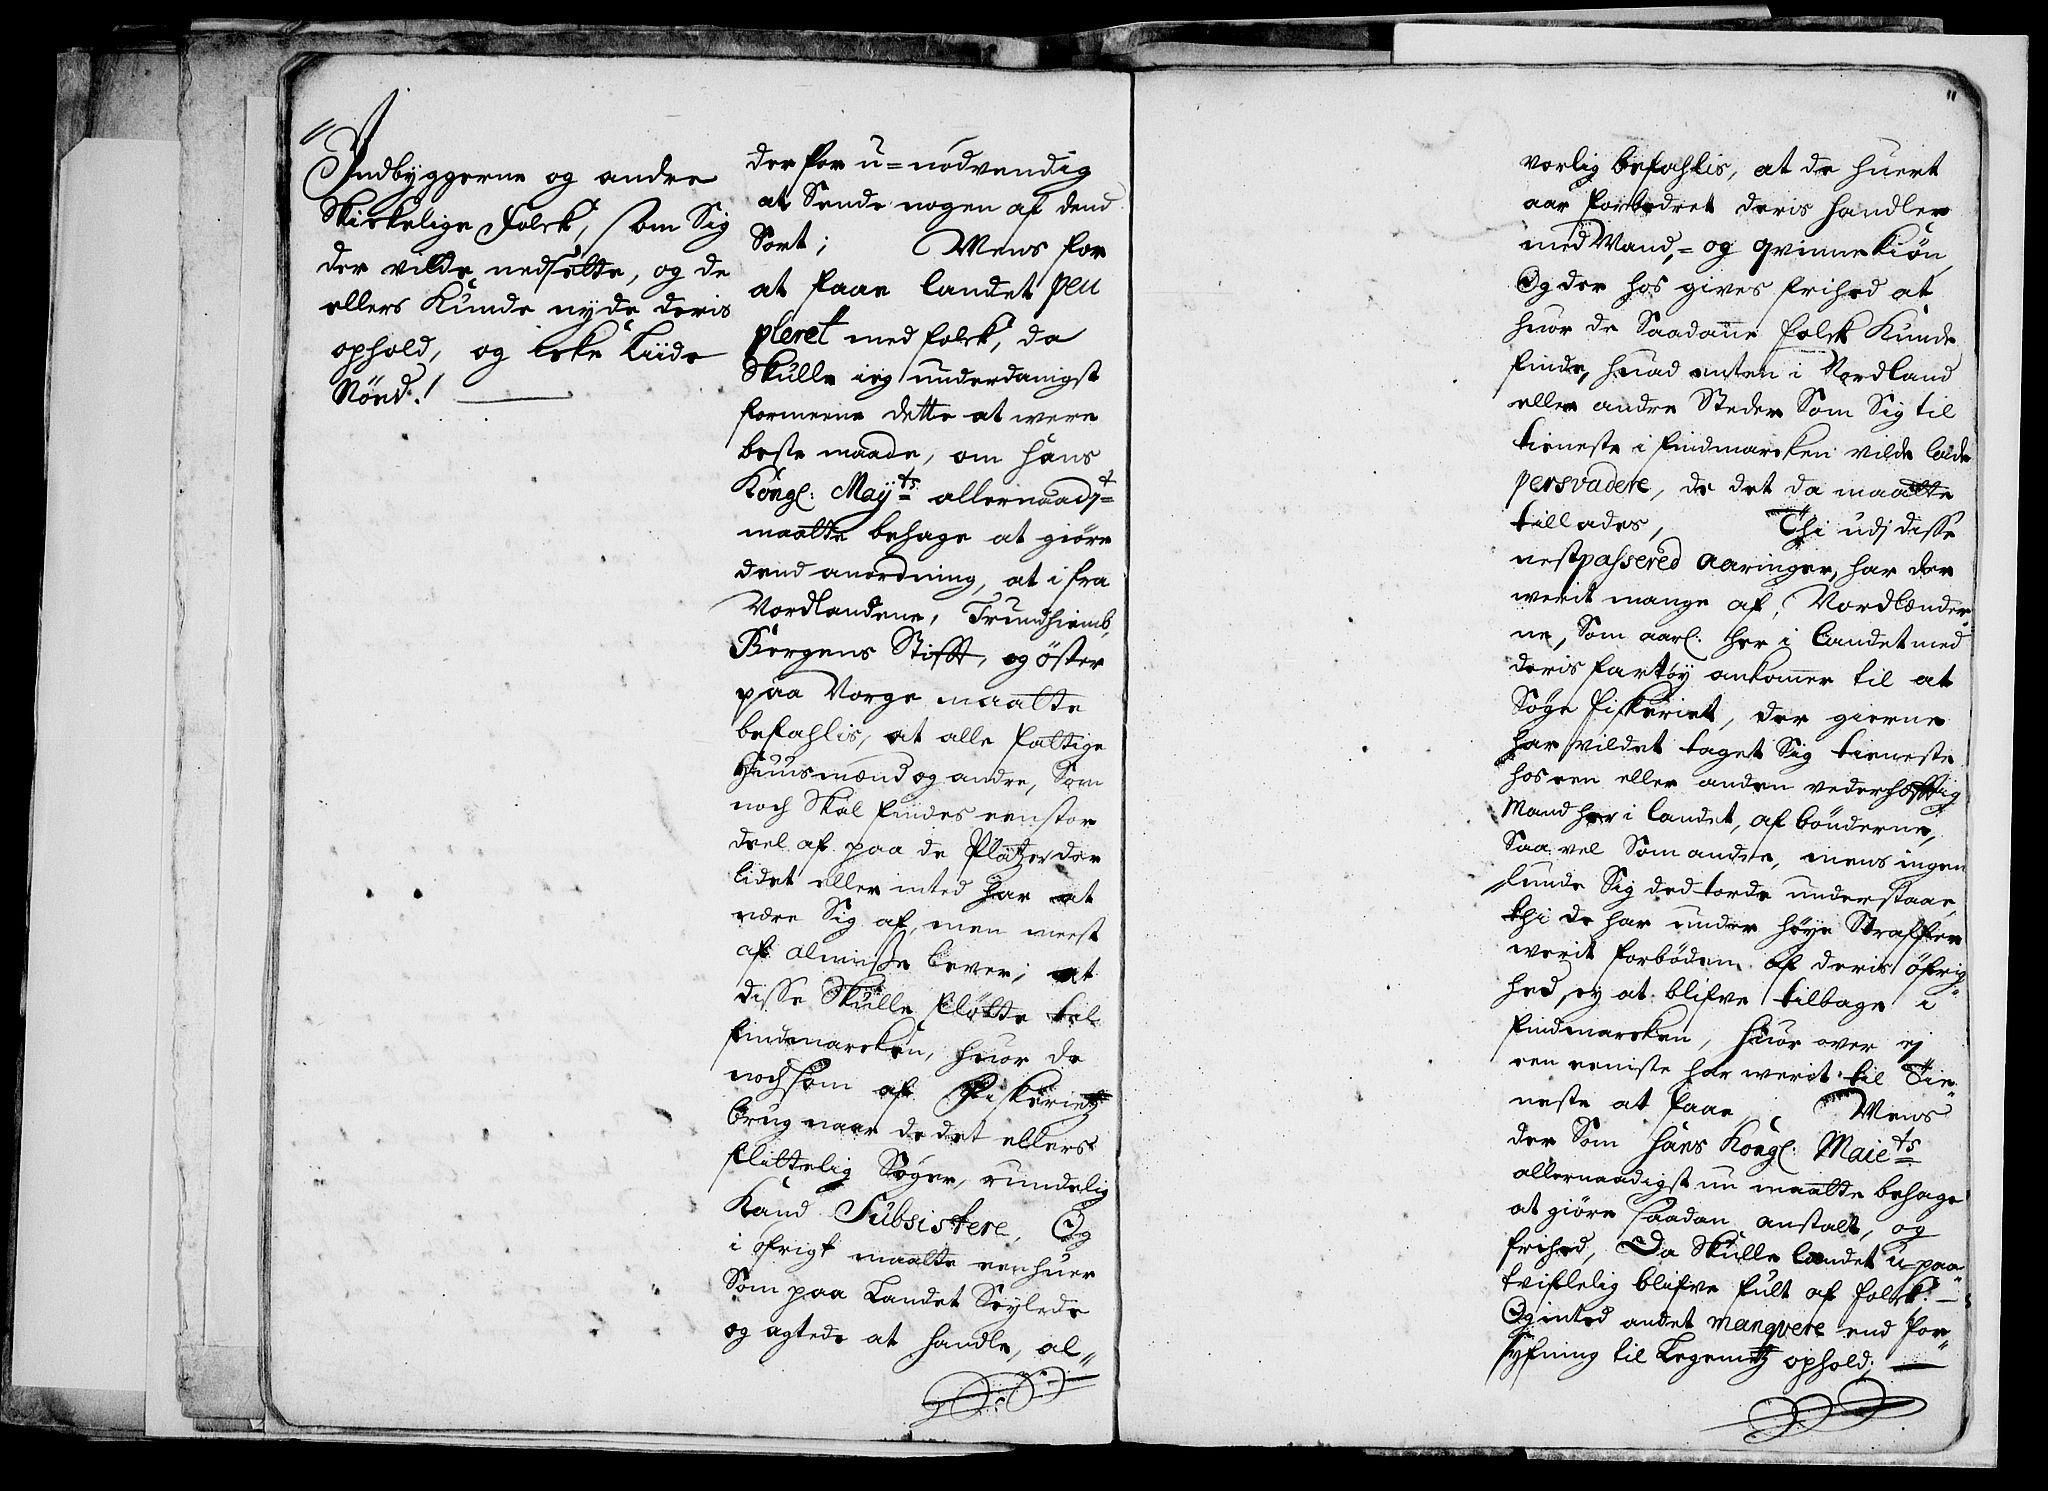 Indbyggerne og andre
Skickelige Folck, som Sig
der vilde nedsette, og de
ellers Kunde nyde deris
ophold, og icke Liide
Nöed.!
derfor u=nödvendig
at Sende nogen af dend
Sort; Mens for
at faae landet peu
pleret med folck, da
Skulle ieg underdanigst
formeene dette at were
beste maade, om hans
Kongl: Mayts allernaadst=
maatte behage at giöre
dend anordning, at i fra
Nordlandene, Trundhiemb,
Bergens Stifft, og öster
paa Norge maatte
befahlis, at alle fattige
Huusmænd og andre, Som
noch Skal findes een stor
deel af paa de Plätzer der
lidet eller inted har at
nære Sig af, men meest
af almisse lever; at
disse Skulle flötte til
findmarcken, huor de
nochsom af Fiskerietz
brug naar de det ellers
flittelig Söger, rundelig
Kand Subsistere, Og
i öfrigt maatte een huer
Som paa Landet Seylede
og agtede at handle, al„
"
vorlig befahlis, at de huert
aar forbedret deris handler
med Mand,= og qvinnekiön,
Og der hos gives frihed at
huor de Saadane folck Kunde
finde, huad enten i Nordland
eller andre Steder Som Sig til
tieneste i findmarcken vilde lade
persvadere, de det da maatte
tillades, Thi udj disse
nestpassered aaringer, har der
werit mange af Nordlænder„
ne, Som aarl: her i landet med
deris fartöy ankomer til at
Söge fiskeriet, der gierne
har vildet taget Sig tieneste
hos een eller anden vederhæfftig
Mand her i landet, af bönderne,
Saa vel Som andre, mens ingen
lunde Sig ded torde understaae,
thi de har under höye Straffer
werit forböden af deris öfrig„
hed, ey at blifve tilbage i
findmarcken, huor over ej
een eeniste har werit til Tie„
neste at faae, Mens
der Som hans Kongl: Maiets
allernaadigst nu maatte behage
at giöre saadan anstalt, og
frihed, Da Skulle landet u=paa„
tviflelig blifve fult af folck. —
Og inted andet manqvere end for„
syfning til Legemetz ophold; —